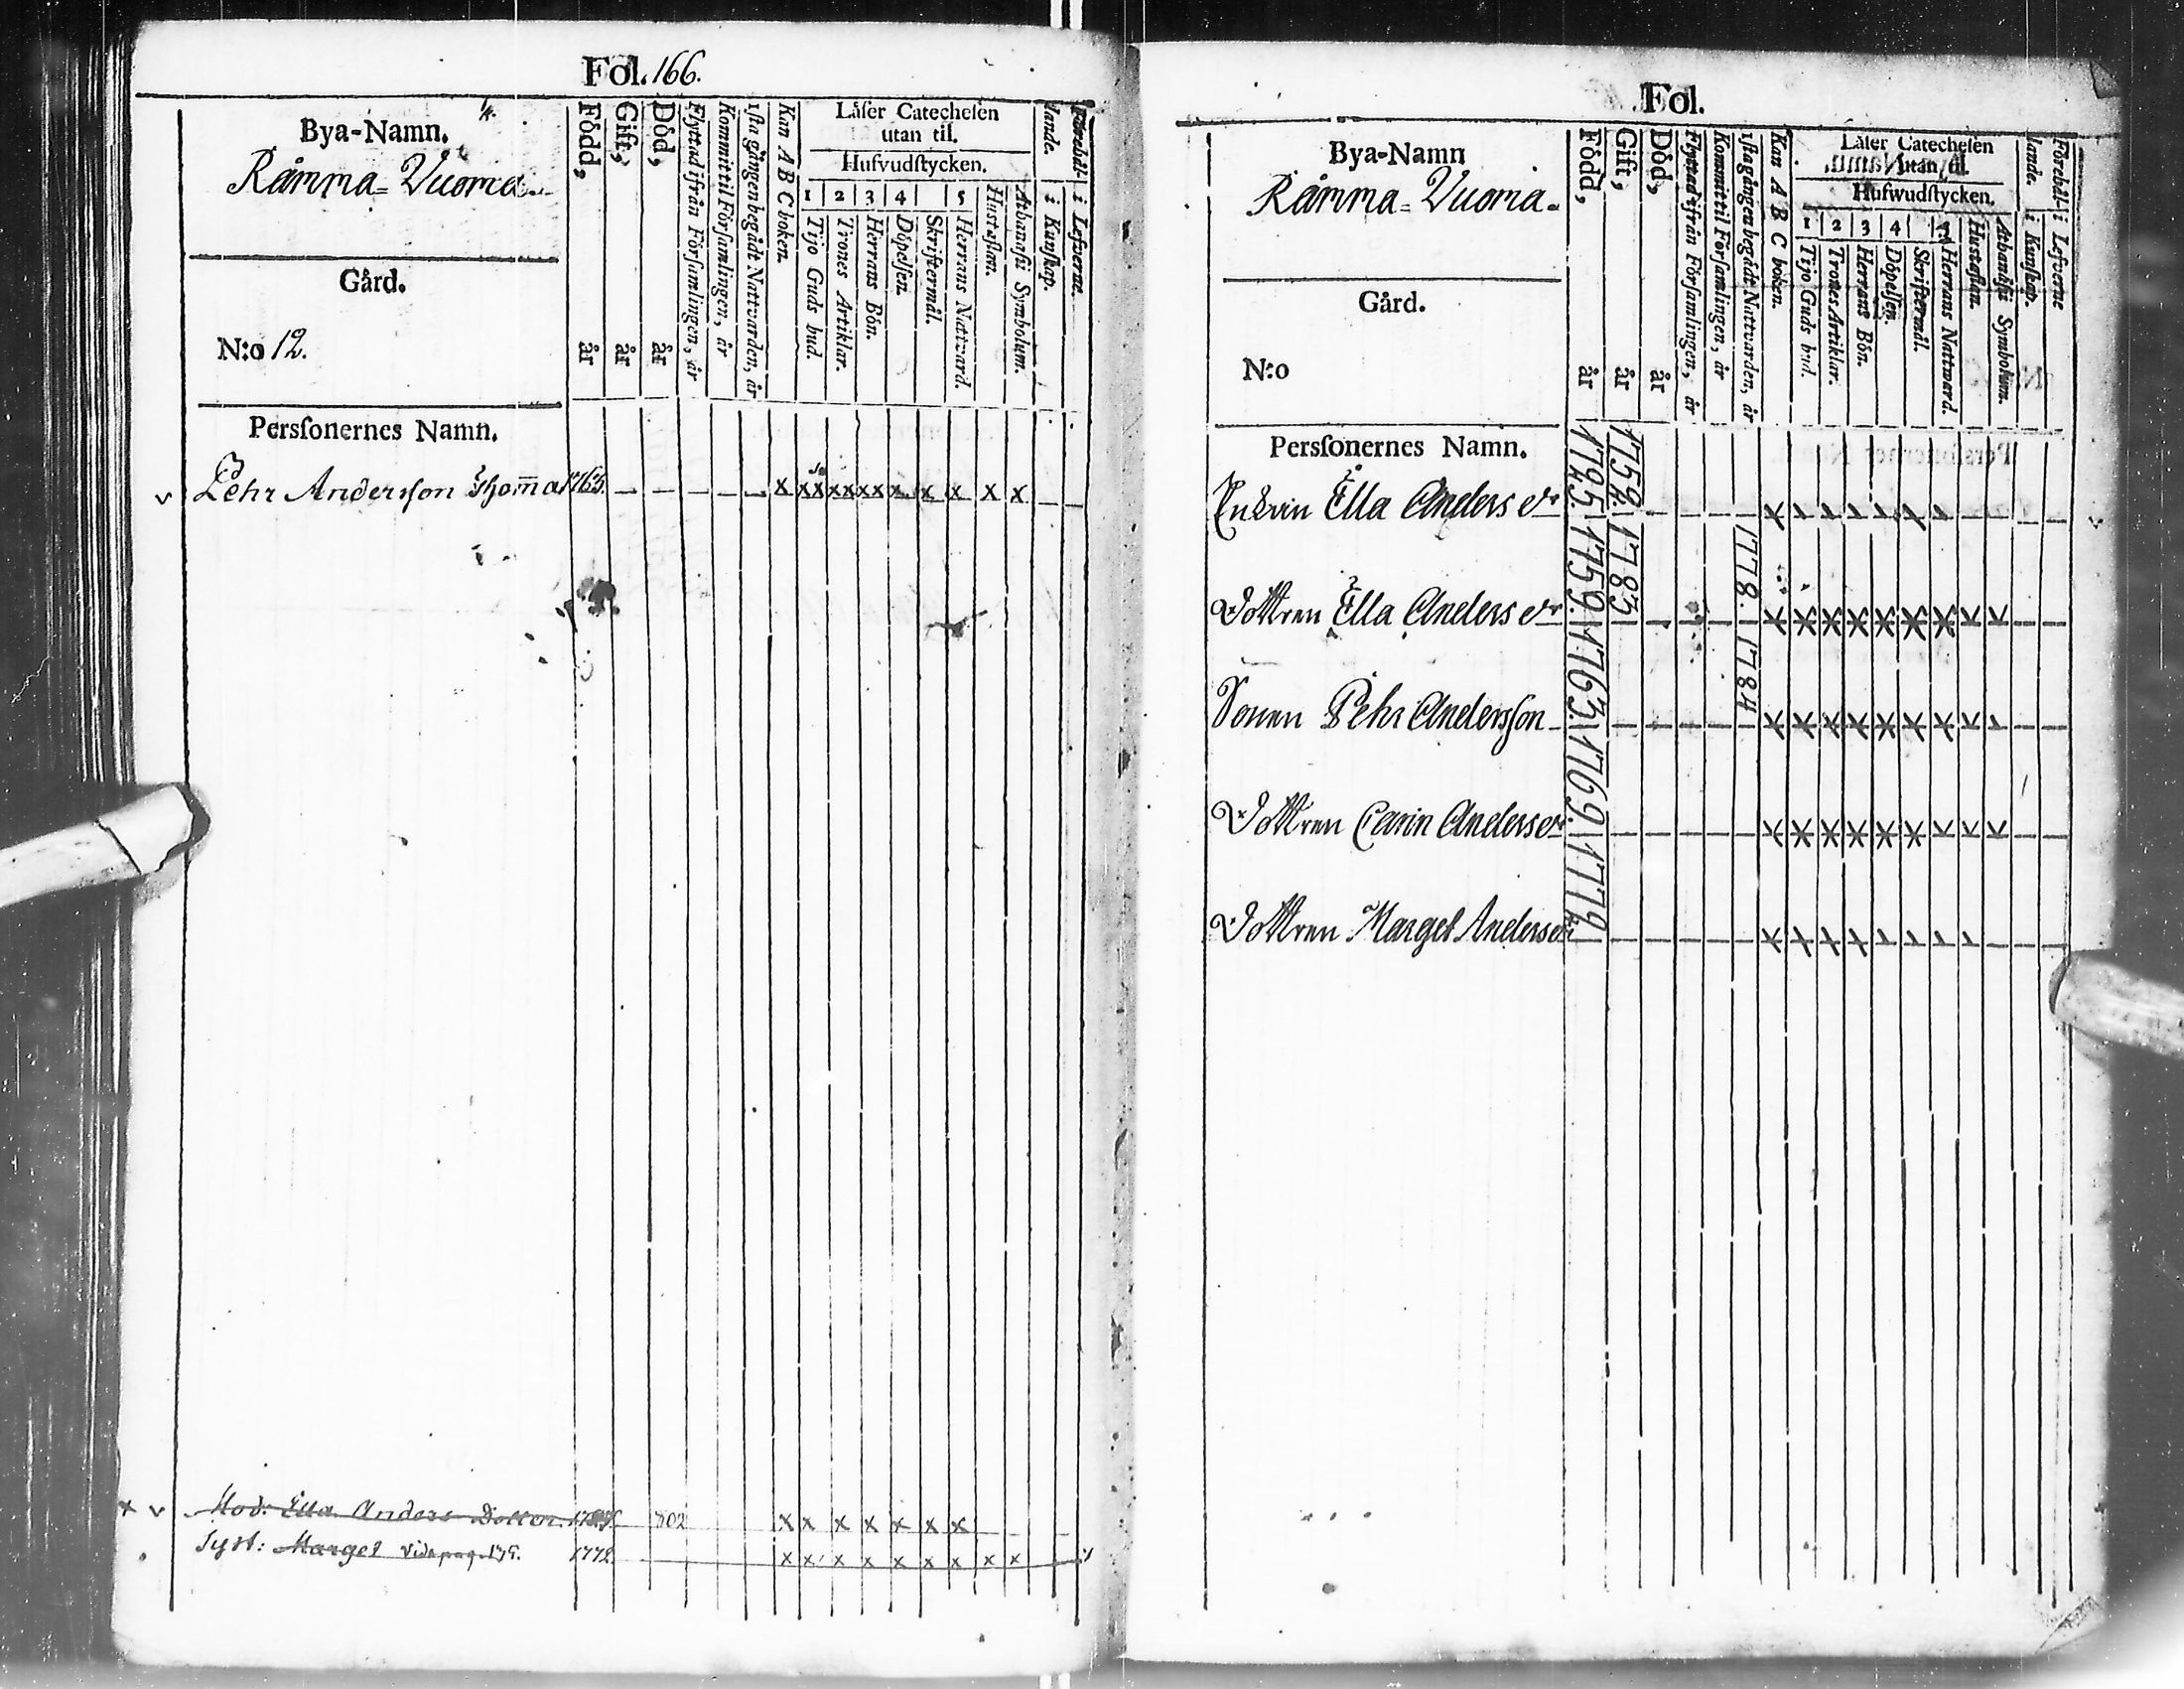 Fol. 166.
Bya-Namn.
Råmma-Vuoma.
Gård.
N:o 12.
Persſonernes Namn.
Född, år
Gift, år
Död, år
Flyttad ifrån Förſamlingen, år
Kommit til Förſamlingen, år
1ſta gången begådt Nattvarden, år
Kan A B C boken.
Låſer Catecheſen
utan til.
Hufvudſtycken.
1 2 3 4 5
Tijo Guds bud.
Trones Artiklar.
Herrans Bön.
Döpelſen.
Skriftermål.
Herrans Nattvard.
Hustaflan.
Athanaſii Symbolum.
Förehål-
lande.
i Kunſkap.
i Lefverne.
v Pehr Andersſon Thom̄a 1763. – – – – – x xx xx xx x x x x x
x v Mod: Ella Anders Dotter 802 x x x x x x x
Syst: Marget vide pag. 179. 1772 x x x x x x x x x
Fol.
Bya-Namn
Råmma-Vuoma.
Gård.
N:o
Persſonernes Namn.
Född, år
Gift, år
Död, år
Flyttad ifrån Förſamlingen, år
Kommit til Förſamlingen, år
1ſta gången begådt Nattvarden, år
Kan A B C boken.
Låſer Catecheſen
utan til.
Hufwudſtycken.
1 2 3 4
Tijo Guds bud.
Trones Artiklar.
Herrans Bön.
Döpelſen.
Skriftermål.
Herrans Nattward.
Hustaflan.
Athanaſii Symbolum.
Förehål-
lande.
i Kunſkap.
i Lefverne
Enkan Ella Anders dr 1725. 1752.
Dottren Ella Anders dr 1759. 1783 1778.
Sonen Pehr Andersſon 1763. 1784
Dottren Carin Anders dr. 1769.
Dottren Marget Anders dr 1772